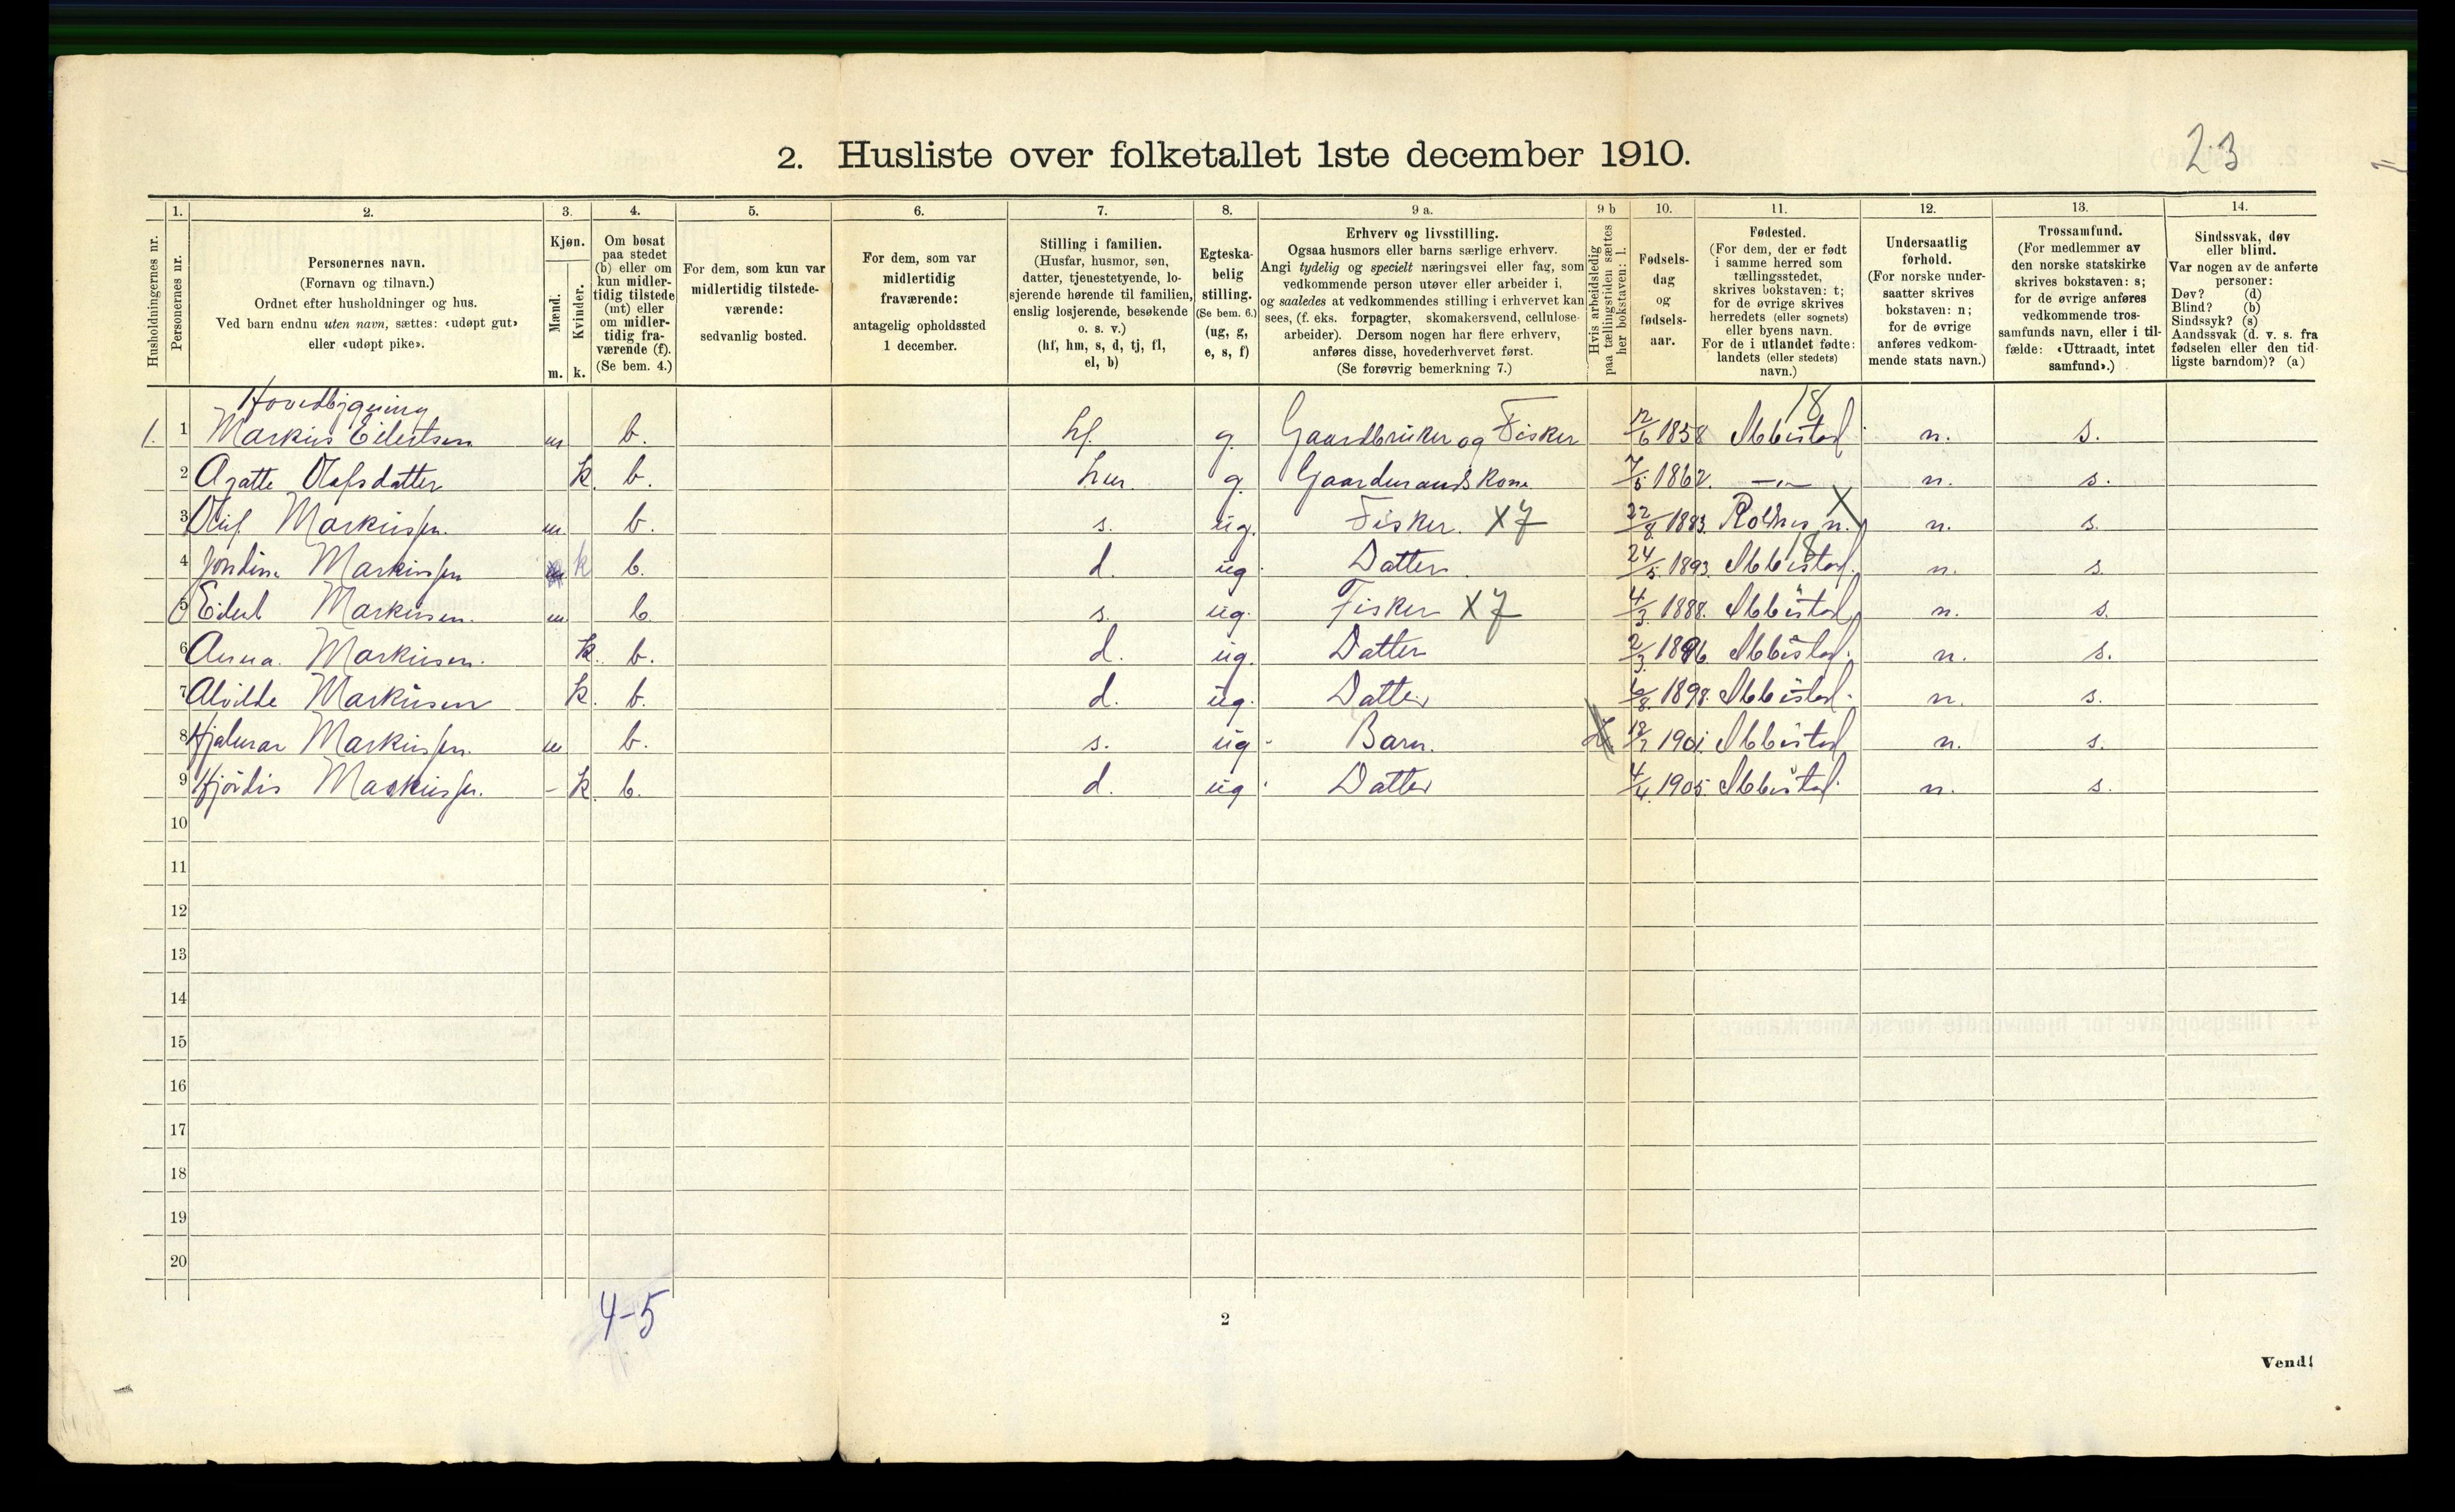 2. Husliste over folketallet 1ste december 1910.
23
Husholdningernes nr.
1.
Personernes nr.
2.
Personernes navn.
(Fornavn og tilnavn.)
Ordnet efter husholdninger og hus.
Ved barn endnu uten navn, sættes: «udøpt gut»
eller «udøpt pike».
3.
Kjøn.
Mænd.
Kvinder.
m. k.
4.
Om bosat
paa stedet
(b) eller om
kun midler-
tidig tilstede
(mt) eller
om midler-
tidig fra-
værende (f).
(Se bem. 4.)
5.
For dem, som kun var
midlertidig tilstede-
værende:
sedvanlig bosted.
6.
For dem, som var
midlertidig
fraværende:
antagelig opholdssted
1 december.
7.
Stilling i familien.
(Husfar, husmor, søn,
datter, tjenestetyende, lo-
sjerende hørende til familien,
enslig losjerende, besøkende
o. s. v.)
(hf, hm, s, d, tj, fl,
el, b)
8.
Egteska-
belig
stilling.
(Se bem. 6.)
(ug, g,
e, s, f)
9 a.
Erhverv og livsstilling.
Ogsaa husmors eller barns særlige erhverv.
Angi tydelig og specielt næringsvei eller fag, som
vedkommende person utøver eller arbeider i,
og saaledes at vedkommendes stilling i erhvervet kan
sees, (f. eks. forpagter, skomakersvend, cellulose-
arbeider). Dersom nogen har flere erhverv,
anføres disse, hovederhvervet først.
(Se forøvrig bemerkning 7.)
9 b
Hvis arbeidsledig
paa tællingstiden sættes
her bokstaven: l.
10.
Fødsels-
dag
og
fødsels-
aar.
11.
Fødested.
(For dem, der er født
i samme herred som
tællingsstedet,
skrives bokstaven: t;
for de øvrige skrives
herredets (eller sognets)
eller byens navn.
For de i utlandet fødte:
landets (eller stedets)
navn.)
12.
Undersaatlig
forhold.
(For norske under-
saatter skrives
bokstaven: n;
for de øvrige
anføres vedkom-
mende stats navn.)
13.
Trossamfund.
(For medlemmer av
den norske statskirke
skrives bokstaven: s;
for de øvrige anføres
vedkommende tros-
samfunds navn, eller i til-
fælde: «Uttraadt, intet
samfund».)
14.
Sindssvak, døv
eller blind.
Var nogen av de anførte
personer:
Døv? (d)
Blind? (b)
Sindssyk? (s)
Aandssvak (d. v. s. fra
fødselen eller den tid-
ligste barndom)? (a)
Hovedbygning 18
1. 1 Markus Eilertsen m b. hf. g. Gaardbruker og Fisker 12/6 1858 Ibbestad n. s.
2 Agatte Olafsdatter k. b. hm. g. Gaardmands Kone 7/5 1862. —"— n. s.
3 Oluf Markussen. m. b. s. ug. Fisker. X7 22/8 1883. n. X n. s.
4 Markussen k b. d. ug. Datter 24/5 1893. Ibbestad. 18 n. s.
5 Eilert Markusen. m b. s. ug. Fisker X7 4/3 1888. Ibbestad n. s.
6 Anna. Markusen. k. b. d. ug. Datter 2/3 1896. Ibbestad. n. s.
7 Alvilde Markusen k. b. d. ug. Datter 6/8 1898. Ibbestad. n. s.
8 Hjalmar Markussen. m b. s. ug. Barn. 1901. Ibbestad n. s.
9 Hjördis Markussen. - k. b. d. ug. Datter 4/4 1905. Ibbestad. n. s.
10
11
12
13
14
15
16
17
18
19
20
4-5
2
Vend!